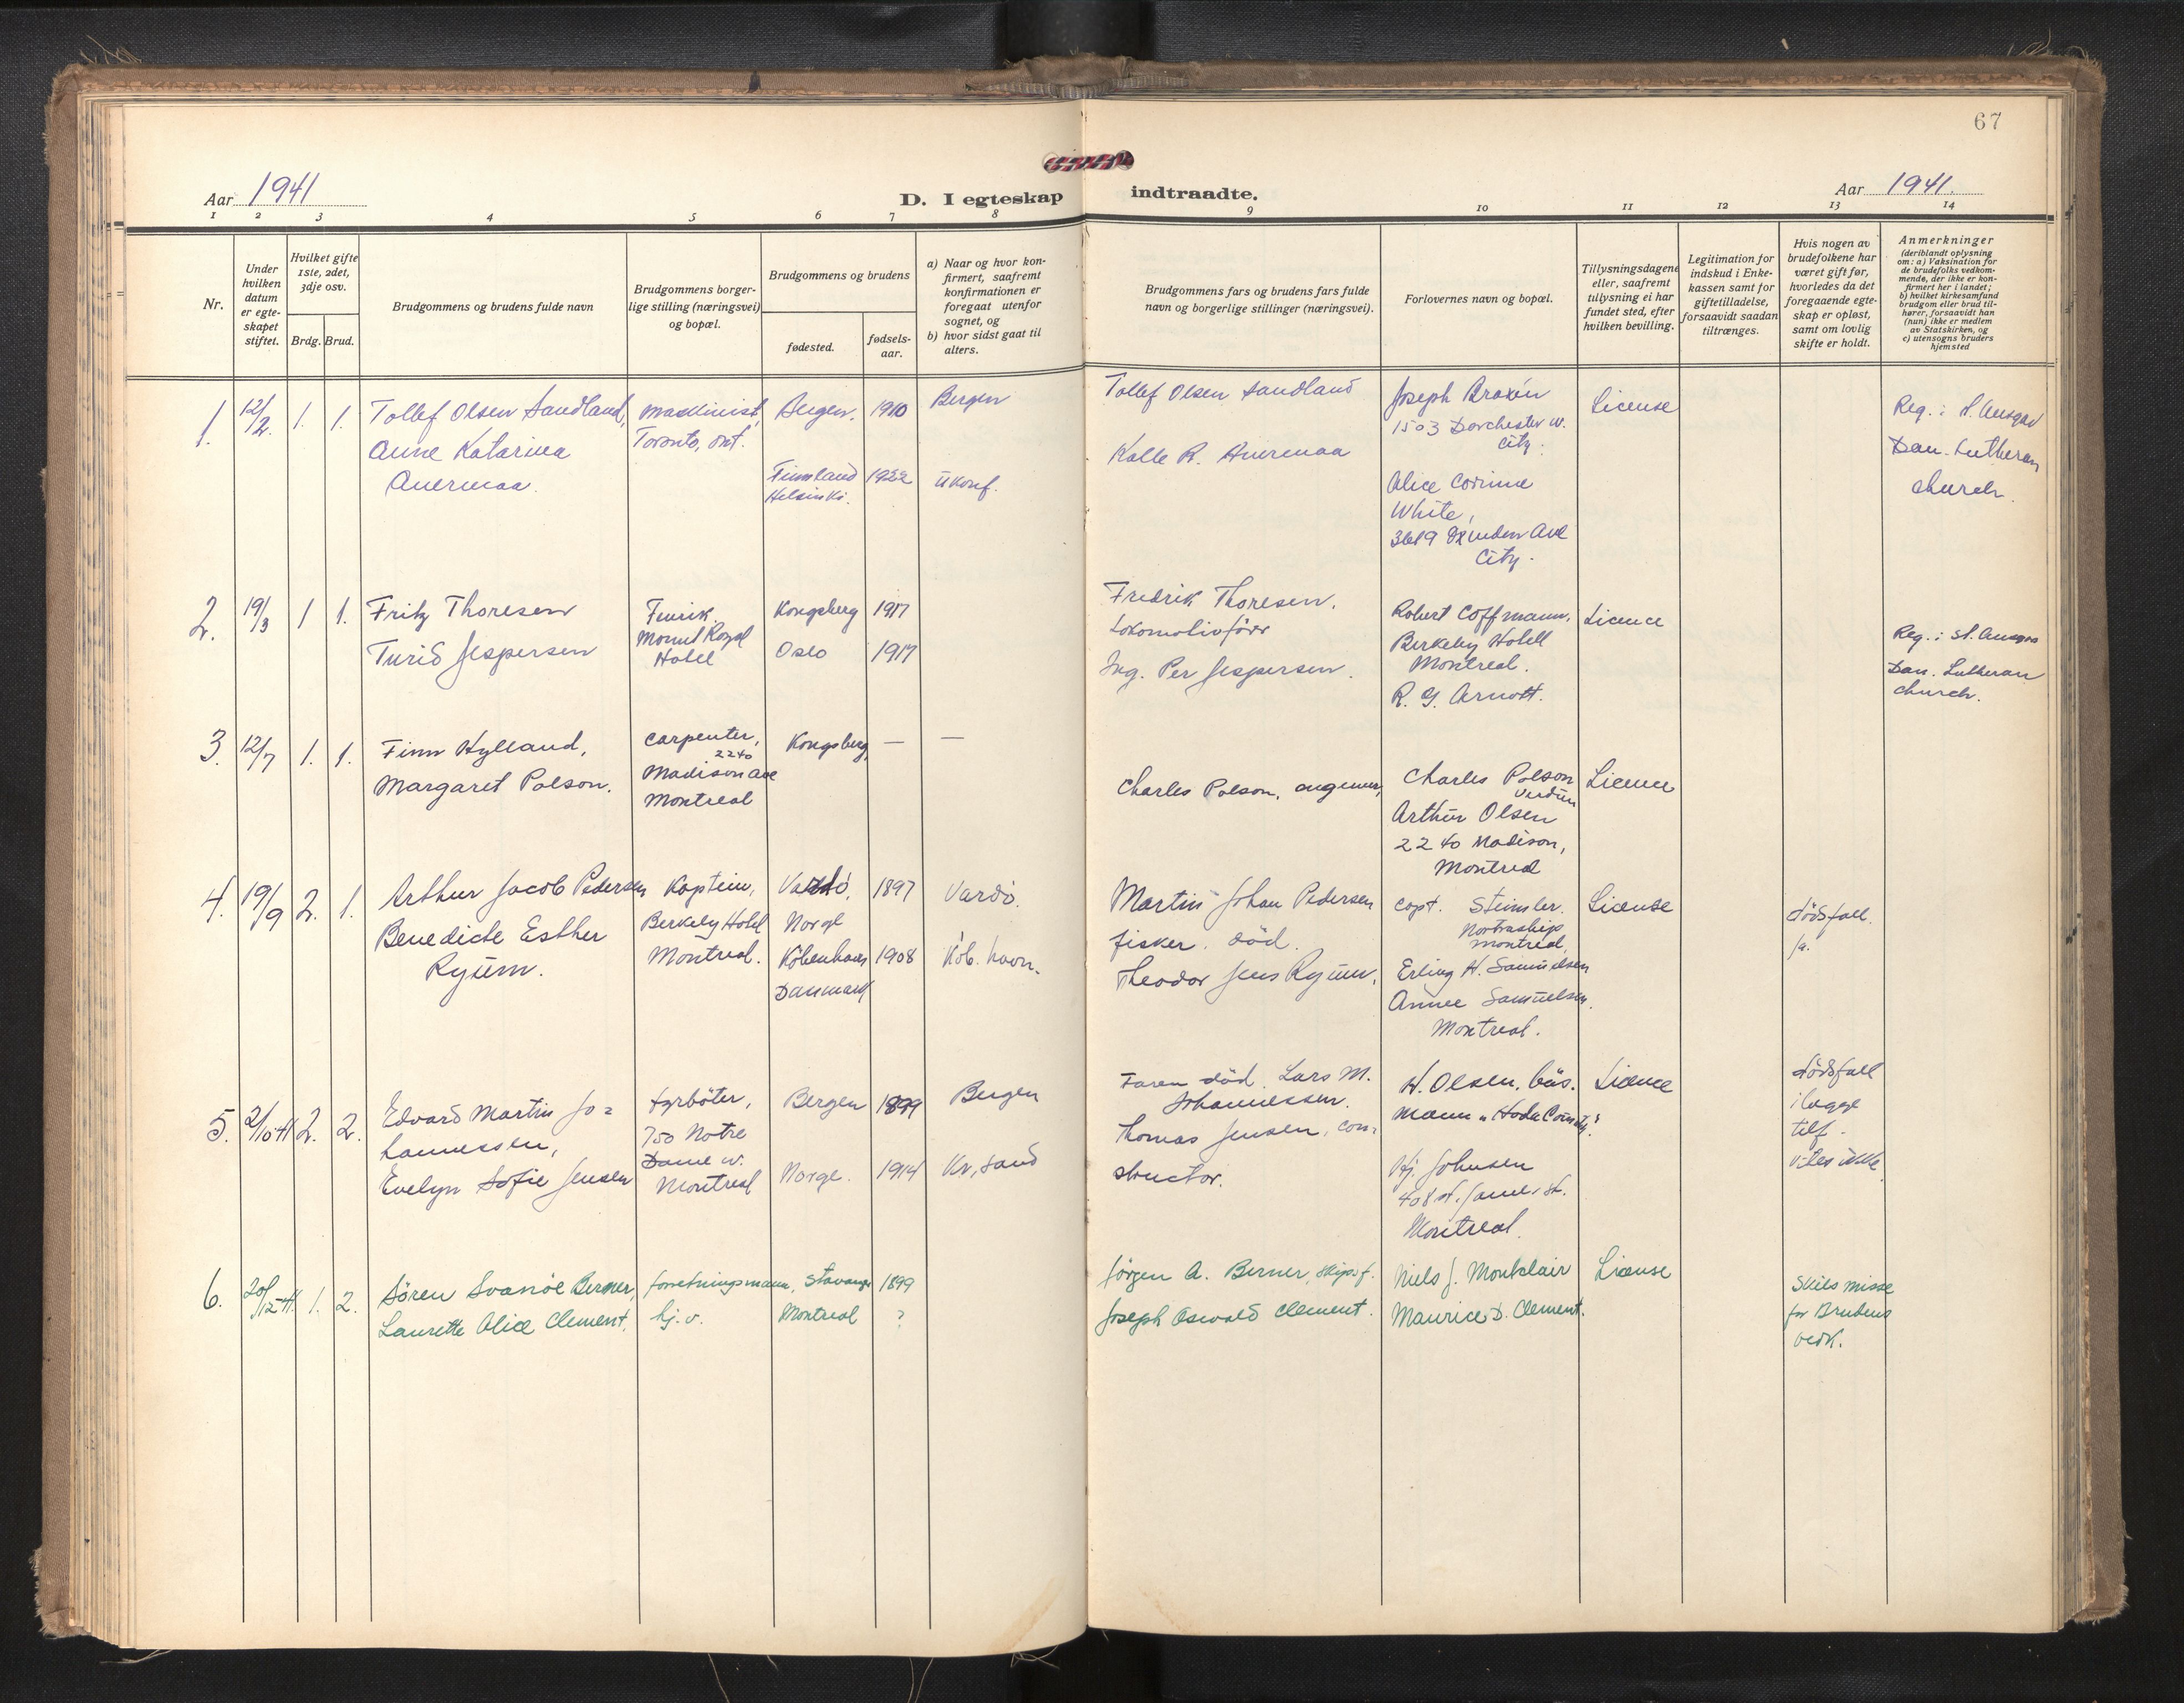 67
Aar 1941
D. I egteskap indtraadte.
Aar 1941.
1 2 3 4 5 6 7 8 9 10 11 12 13 14
Nr.
Under
hvilken
datum
er egte-
skapet
stiftet.
Hvilket gifte
1ste, 2det,
3dje osv.
Brdg. Brud.
Brudgommens og brudens fulde navn
Brudgommens borger-
lige stilling (næringsvei)
og bopæl.
Brudgommens og brudens
fødested.
fødsels-
aar.
a) Naar og hvor kon-
firmert, saafremt
konfirmationen er
foregaat utenfor
sognet, og
b) hvor sidst gaat til
alters.
Brudgommens fars og brudens fars fulde
navn og borgerlige stillinger (næringsvei).
Forlovernes navn og bopæl.
Tillysningsdagene
eller, saafremt
tillysning ei har
fundet sted, efter
hvilken bevilling.
Legitimation for
indskud i Enke-
kassen samt for
giftetilladelse,
forsaavidt saadan
tiltrænges.
Hvis nogen av
brudefolkene har
været gift før,
hvorledes da det
foregaaende egte-
skap er opløst,
samt om lovlig
skifte er holdt.
Anmerkninger
(deriblandt oplysning
om: a) Vaksination for
de brudefolks vedkom-
mende, der ikke er kon-
firmert her i landet;
b) hvilket kirkesamfund
brudgom eller brud til-
hører, forsaavidt han
(hun) ikke er medlem
av Statskirken, og
c) utensogns bruders
hjemsted
1. 12/2. 1. 1.
Tollef Olsen Sandland,
Anne Katarina
Auermaa.
Maskinist,
Toronto, Ont.
Bergen. 1910
Finnland
Helsinki. 1922
Bergen
Ukonf.
Tollef Olsen Sandland
Kalle R. Auermaa
Joseph Braxén
1503 Dorchester W.
City.
Alice Corinne
White,
City.
License
Reg.: St. Ansgar
Dan. Lutheran
church.
2. 19/3 1 1.
Fritz Thoresen
Turid Jespersen
Fenrik
Mount Royal
Hotel
Kongsberg 1917
Oslo 1917
Fredrik Thoresen.
Lokomotivfører
Ing. Per Jespersen.
Robert Coffmann,
Berkeley Hotell
Montreal.
R. G. Arnott.
Licence
Reg.: St. Ansgar
Dan. Lutheran
church.
3. 12/7 1. 1.
Finn Hylland,
Margaret Polson.
Carpenter,
2240
Madison Ave
Montreal
Kongsberg, — —
Charles Polson,
Charles Polson
Verdun
Arthur Olsen
2240 Madison,
Montreal
Licence
4. 19/9 2. 1.
Arthur Jacob Pedersen
Benedicte Esther
Ryum.
Kaptein,
Berkely Hotel
Montreal.
Vardö, 1897
Norge
Köbenhavn 1908
Danmark
Vardö.
Köb. havn.
Martin Johan Pedersen
fisker. död.
Theodor Jens Ryum.
Capt. Steimler.
Nortraship
Montreal,
Erling H. Samuelsen
Annee Samuelsen.
Montreal.
License
dödsfall.
ja.
5. 2/10-41 2. 2.
Edvard Martin Jo=
hannessen,
Evelyn Sofie Jensen
Fyrböter,
750 Notre
Dame W.
Montreal
Bergen 1899
Norge. 1914
Bergen
Kr. sand
Faren död. Lars M.
Johannessen.
Thomas Jensen, con=
structor.
H. Olsen, bås.
mann "Hada County".
Hj. Johnsen
408 St. James St.
Montreal.
Licence
dödsfall
i begge
tilf.
vites ikke
6. 20/12-41. 1. 2.
Sören Svanöe Berner,
Laurette Alice Clement.
forretningsmann,
hj. v.
Stavanger 1899
Montreal ?
Jörgen A. Berner, skipsf.
Joseph Oswald Clement.
Niels J. Montclair
Maurice D. Clement.
License
Skilsmisse
for Brudens
vedk.